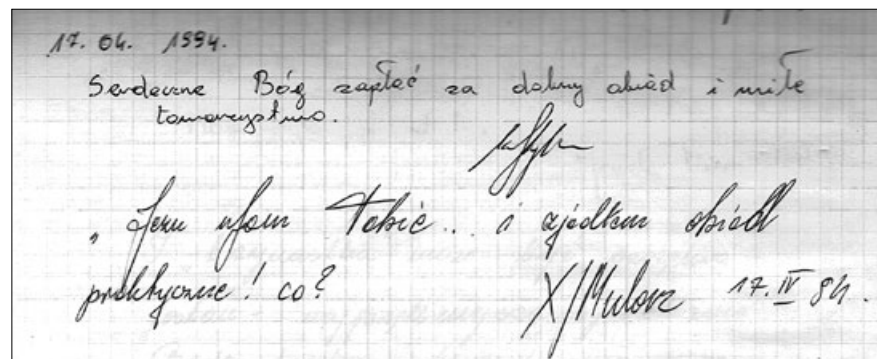 17. 04. 1994.
Serdeczne Bóg zapłać za dobry obiad i miłe
towarzystwo.
„Jezu ufam Tobie... i zjadłem obiad
praktycznie! co?
17. IV 94.